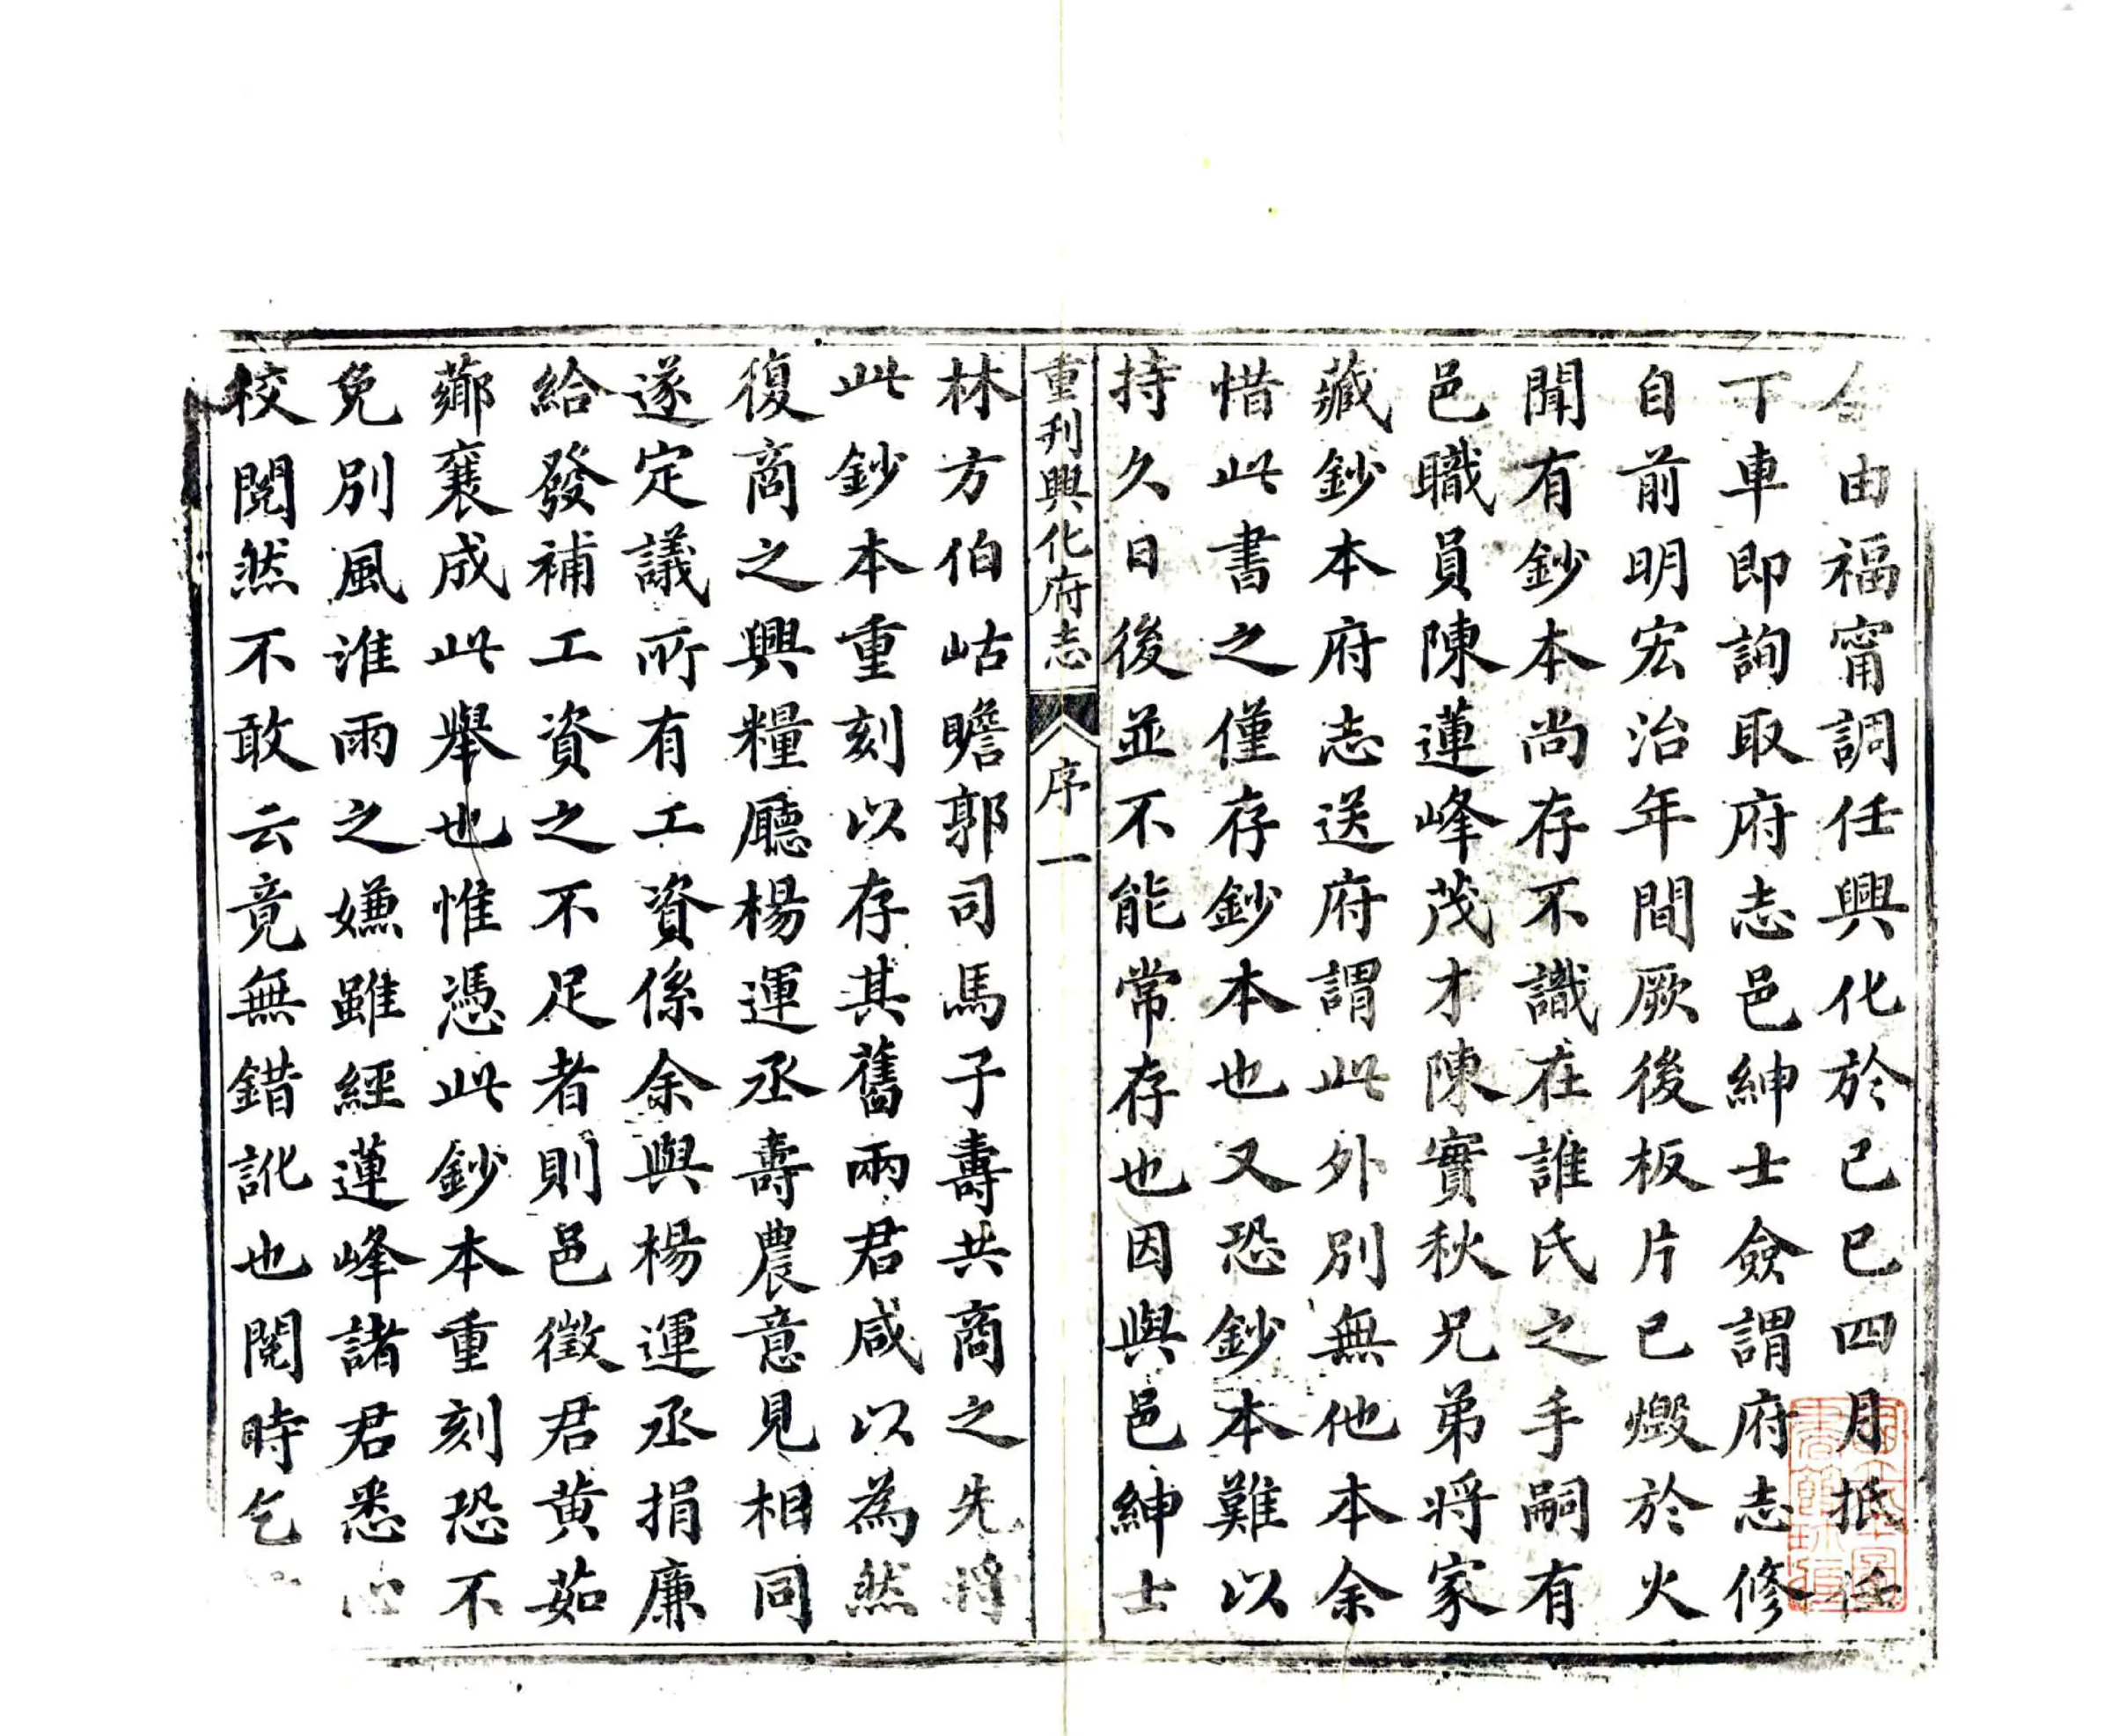 余由福甯調任興化於己巳四月抵任
丁車即詢取府志邑紳士僉謂府志修
自前明宏治年間厥後板片已燬於火
聞有鈔本尚存不識在誰氏之手嗣有
邑職員陳蓮峰茂才陳實秋兄弟將家
藏鈔本府志送府謂此外別無他本余
惜此書之僅存鈔本也又恐鈔本難以
持久日後並不能常存也因與邑紳士
重刊興化府志 序 一
林方伯岵瞻郭司馬子壽共商之先將
此鈔本重刻以存其舊兩君咸以為然
復商之興糧廳楊運丞壽農意見相同
遂定議所有工資係余與楊運丞捐廉
給發補工資之不足者則邑徵君黄茹
薌襄成此舉也惟憑此鈔本重刻恐不
免別風淮雨之嫌雖經蓮峰諸君悉心
校閱然不敢云竟無錯訛也閱時乞